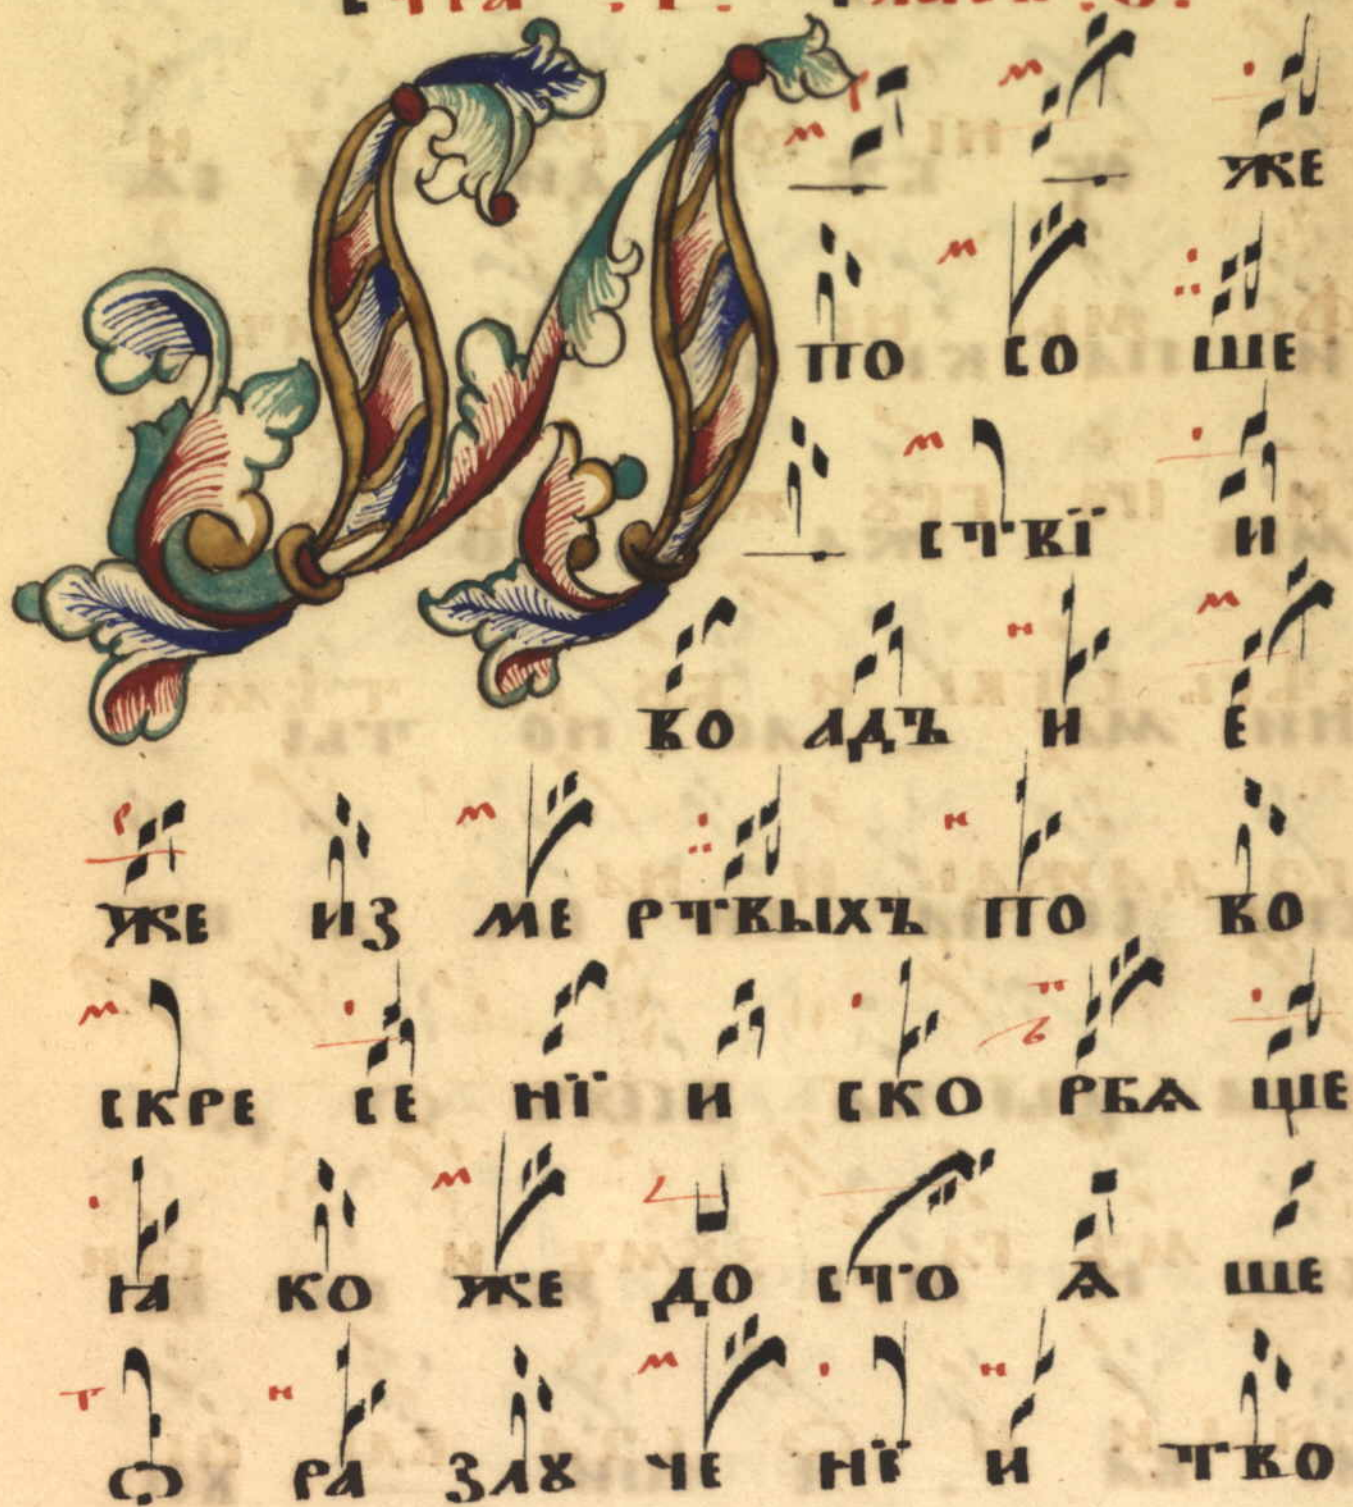 И же
по со ше
ствї и
во адъ и е
же из ме ртвыхъ по во
скре се нї и ско рбѧ ше
ꙗ ко же до сто ѧ ше
ѡ ра злꙋ че нї и тво